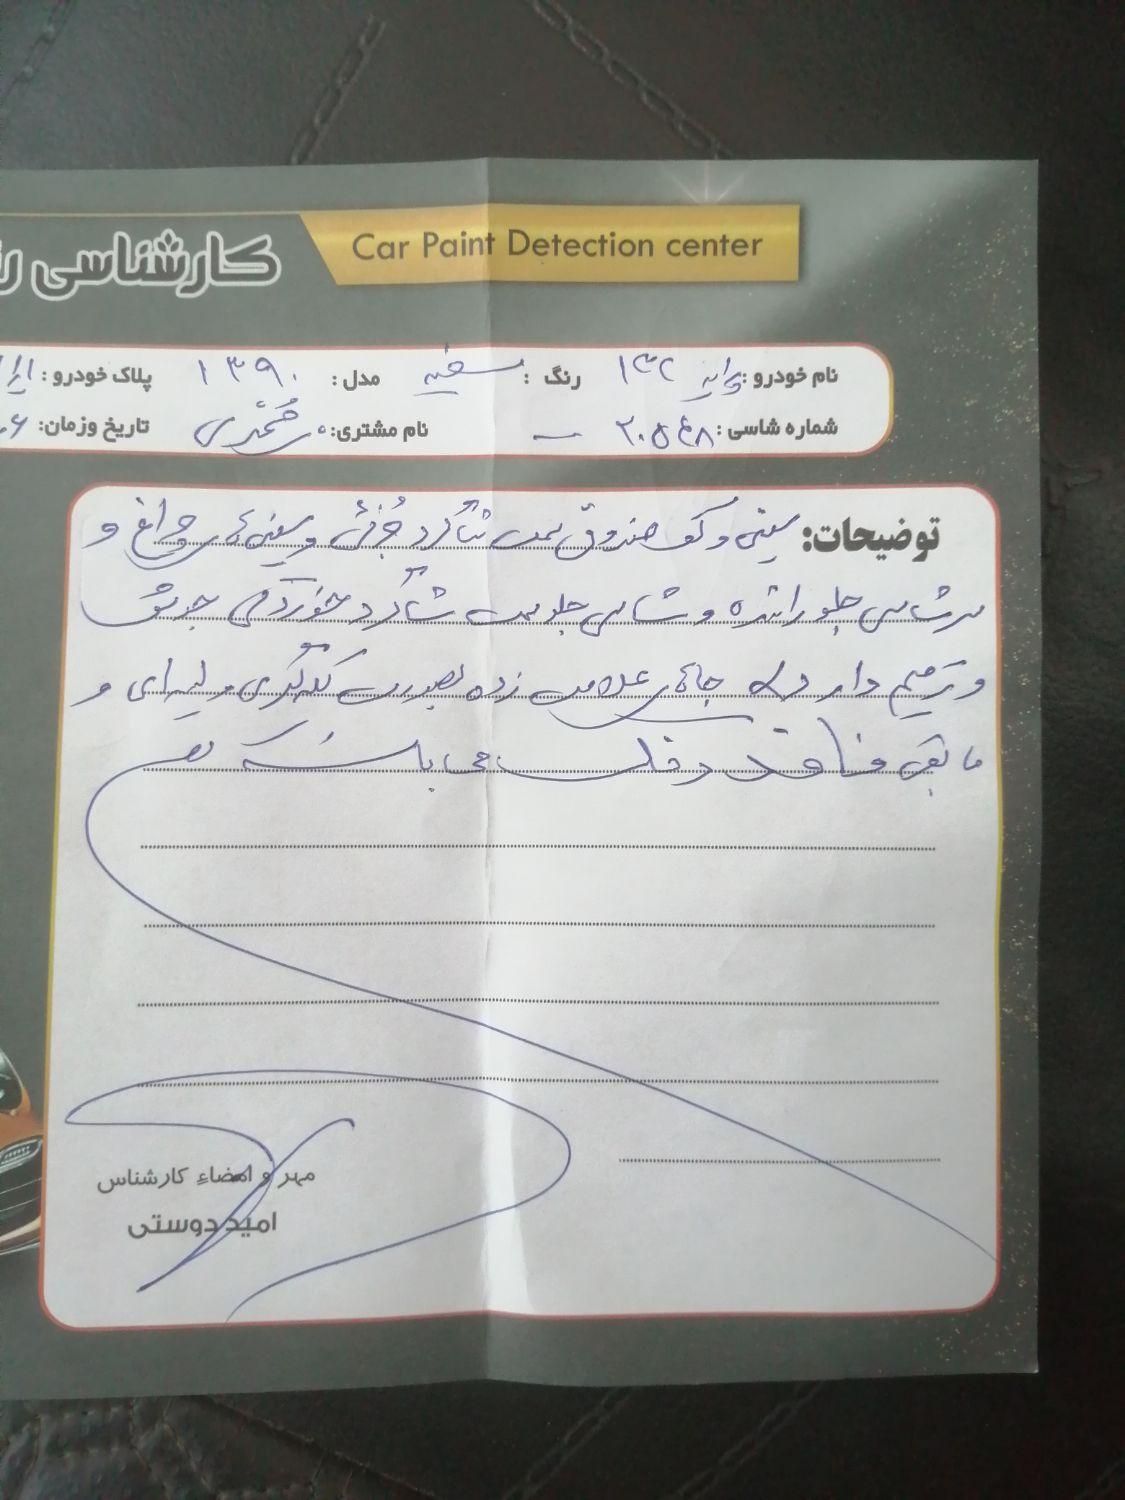 Car Paint Detection center
کارشناسی
نام خودرو: پراید ۱۳۲ رنگ: سفید مدل: ۱۳۹۰ پلاک خودرو:
شماره شاسی: ۲۰۵۴۸ نام مشتری: محمدی تاریخ وزمان:
توضیحات: سینی و کف صندوق سمت شاگرد جزئی و سینی های چراغ و
سرشاسی جلو راننده و شاسی جلو سمت شاگرد خوردگی جوش
و ترمیم دارد جاهای علامت زده بصورت لکه گیری و لیسه ای و
مابقی فاقد رنگ می باشد
مهر و امضاء کارشناس
امید دوستی